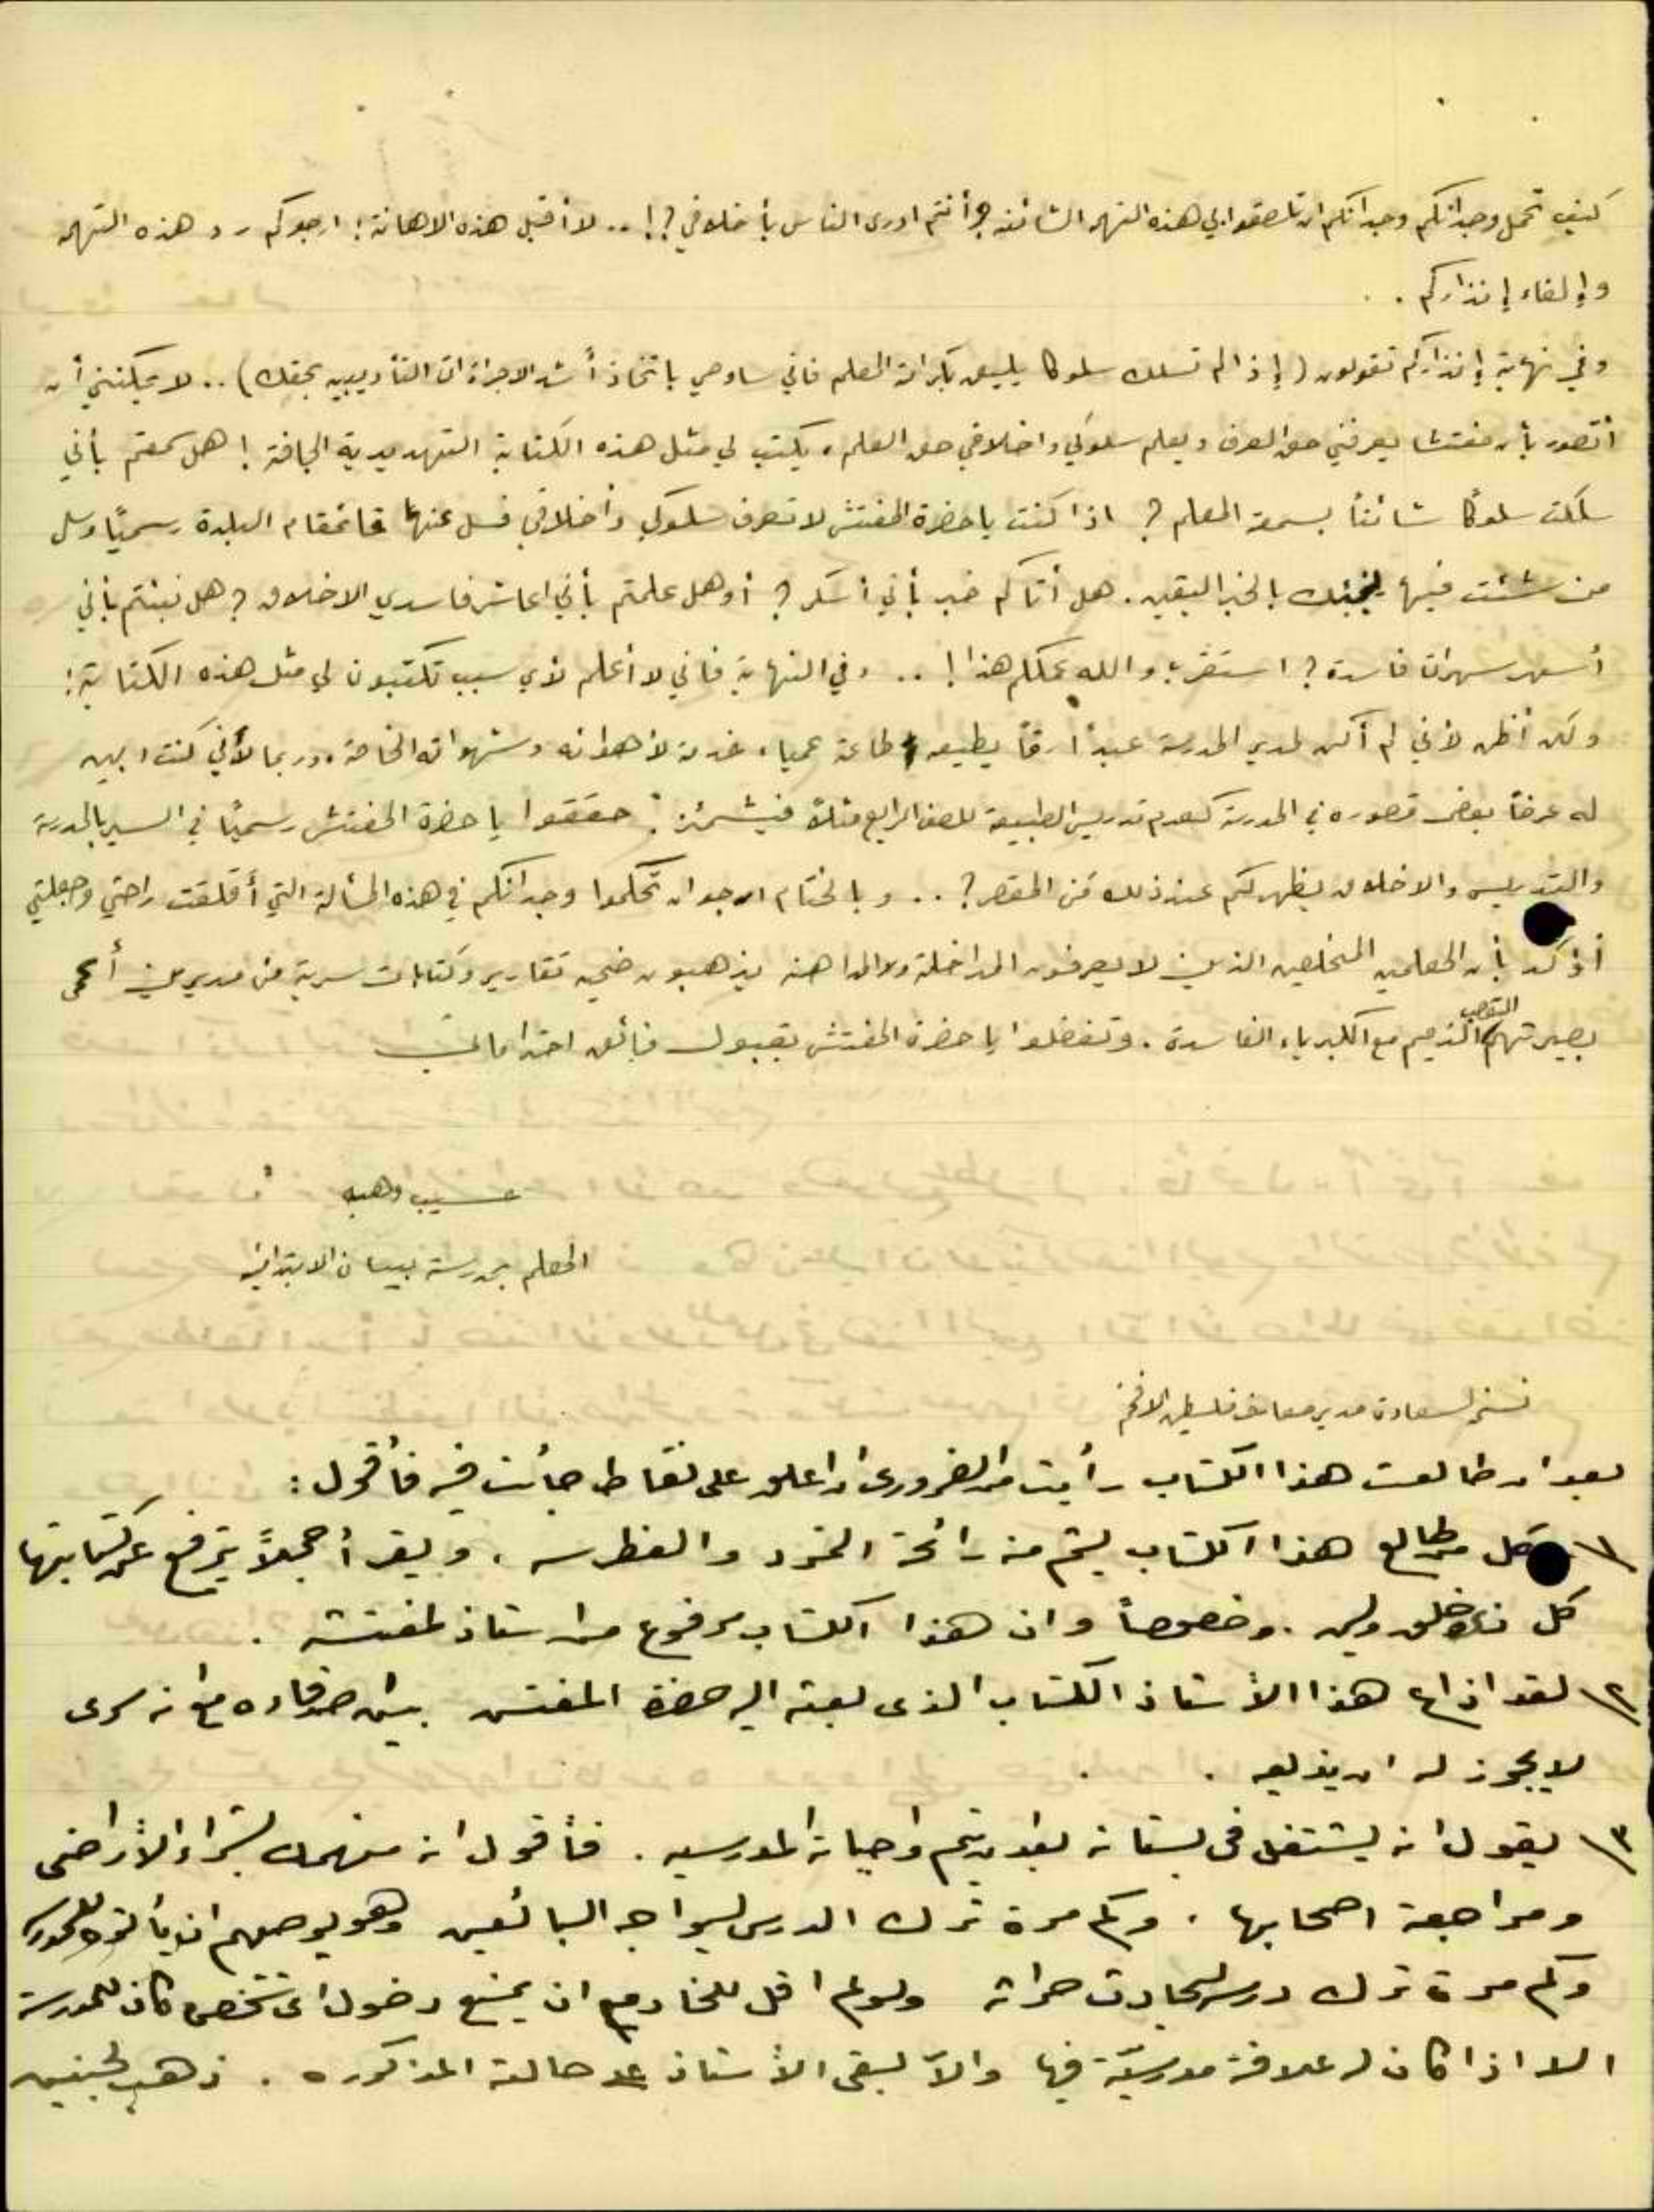 كيف تحمل وجدانكم وجدانكم ان تلصقوا بي هذه التهم الشائنه وأنتم ادرى الناس بأخلاقي؟! .. لا أقبل هذه الاهانة! ارجوكم رد هذه التهمه
وإلغاء إنذاركم ..
وفي نهاية إنذاركم تقولون (إذا لم تسلك سلوكا يليق بكرامة المعلم فاني ساوصي باتخاذ أشد الاجراءات التأديبيه بحقك) .. لا يمكنني أن
أتصور بأن مفتشا يعرفني حق المعرفه ويعلم سلوكي واخلاقي حق العلم، يكتب لي مثل هذه الكتابة التهديدية الجافة! هل سمعتم بأني
سلكت سلوكًا شائنًا بسمعة المعلم؟ اذا كنت يا حضرة المفتش لا تعرف سلوكي وأخلاقي فسل عنها قائمقام البلدة رسميًا وسل
من شئت فيها ينبئك بالخبر اليقين. هل أتاكم خبر بأني أسكر؟ أو هل علمتم بأني اعاشر فاسدي الاخلاق؟ هل نبئتم بأني
أسهر سهرات فاسدة؟ استغرب والله عملكم هذا! .. وفي النهاية فاني لا أعلم لأي سبب تكتبون لي مثل هذه الكتابة!
ولكن أظن لأني لم أكن لمدير المدرسة عبدًا رقًا يطيعه طاعة عمياء خدمة لأهوائه وشهواته الخاصة، وربما لأني كنت ابين
له عرضًا بعض قصوره في المدرسة كعدم تدريس الطبيعة للصف الرابع مثلاً فيشمئز. حققوا يا حضرة المفتش رسميًا في السير بالمدرسة
والتدريس والاخلاق يظهر لكم عند ذلك مَن المقصر؟ .. وبالختام ارجو ان تحكموا وجدانكم في هذه المسألة التي أقلقت راحتي وجعلتني
أؤكد بأن المعلمين المخلصين الذين لا يعرفون المداخلة ولا المداهنة يذهبون ضحية تقارير وكتابات سرية من مديرين أعمى
بصيرتهم التعصب الذميم مع الكبرياء الفاسدة. وتفضلوا يا حضرة المفتش بقبول فائق احتراماتي
حسيب وهبه
المعلم بمدرسة بيسان الابتدائيه
نسخه لسعادة مدير معارف فلسطين الافخم
بعد ان طالعت هذا الكتاب رأيت من الضروري ان اعلق على نقاط جاءت فيه فأقول:
١\ كل من طالع هذا الكتاب يشتم منه رائحة التمرد والغطرسه. ويقرأ جملاً يترفع عن كتابتها
كل ذي خلق ولين. وخصوصاً وان هذا الكتاب مرفوع من استاذ لمفتشه.
٢\ لقد اذاع هذا الأستاذ الكتاب الذي بعثه اليه حضرة المفتش بين رفاقه مع انه سرى
لا يجوز له ان يذيعه.
٣\ يقول انه يشتغل في بستانه بعد ان يتم واجباته المدرسيه. فأقول انه منهمك بشراء الأراضي
ومراجعة اصحابها. وكم مرة ترك الدرس ليواجه البائعين وهو يوصيهم ان يأتوه للمدرسة
وكم مرة ترك درسه ليحادث حراثه ولو لم اقل للخادم ان يمنع دخول اي شخص كان للمدرسة
الا اذا كان له علاقة مدرسيّة فيها والا لبقى الأستاذ على حالته المذكوره. ذهب لجنين